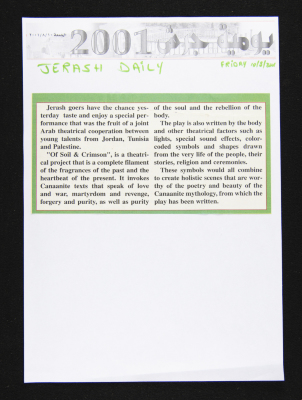 2001
JERASH DAILY
FRIDAY
Jerash goers have the chance yes-
terday taste and enjoy a special per-
formance that was the fruit of a joint
Arab theatrical cooperation between
young talents from Jordan, Tunisia
and Palestine.
"Of Soil & Crimson", is a theatri-
cal project that is a complete filament
of the fragrances of the past and the
heartbeat of the present. It invokes
Canaanite texts that speak of love
and war, martyrdom and revenge,
forgery and purity, as well as purity
of the soul and the rebellion of the
body.
The play is also written by the body
and other theatrical factors such as
lights, special sound effects, color-
coded symbols and shapes drawn
from the very life of the people, their
stories, religion and ceremonies.
These symbols would all combine
to create holistic scenes that are wor-
thy of the poetry and beauty of the
Canaanite mythology, from which the
play has been written.